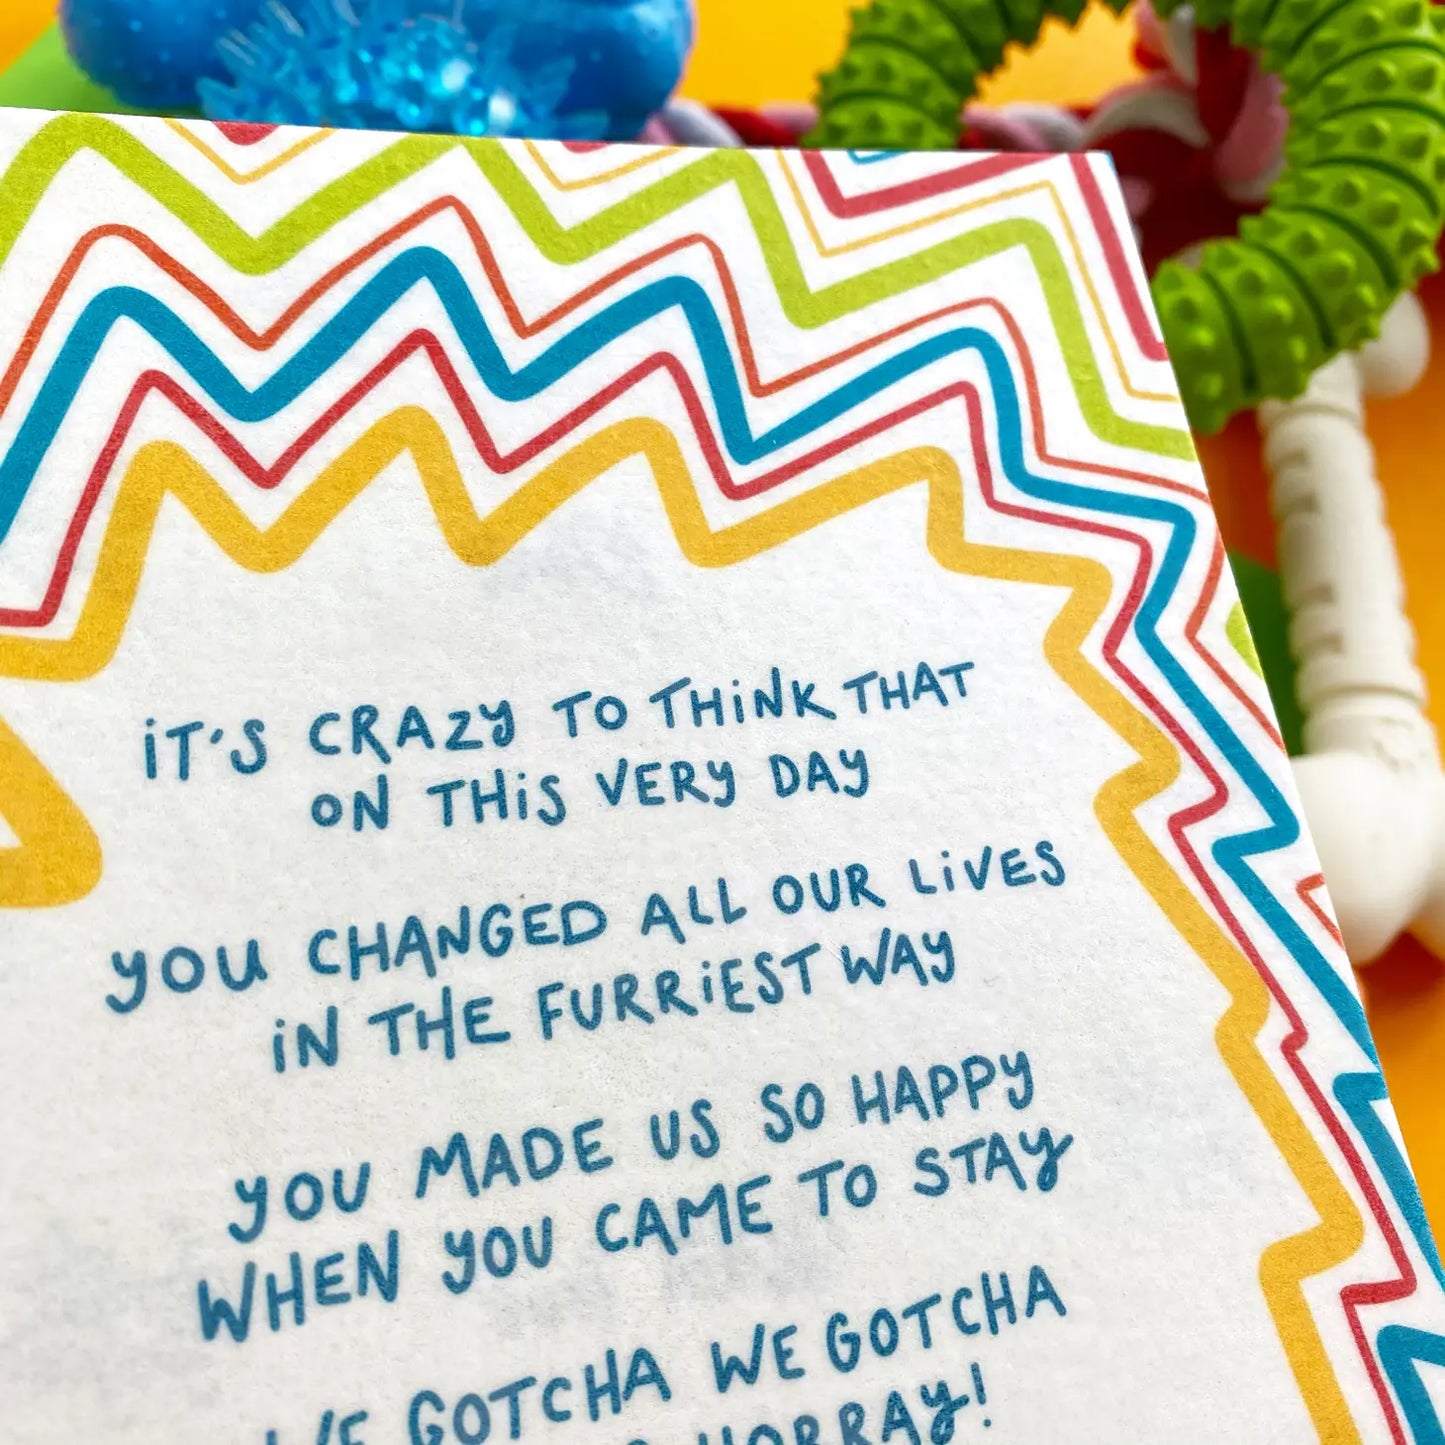 iT'S CRAZY TO THiNK THAT
ON THiS VERY DAY
YOU CHANGED ALL OUR LiVES
iN THE FURRiEST WAY
YOU MADE US SO HAPPY
WHEN YOU CAME TO STAY
WE GOTCHA WE GOTCHA
HORRAY!